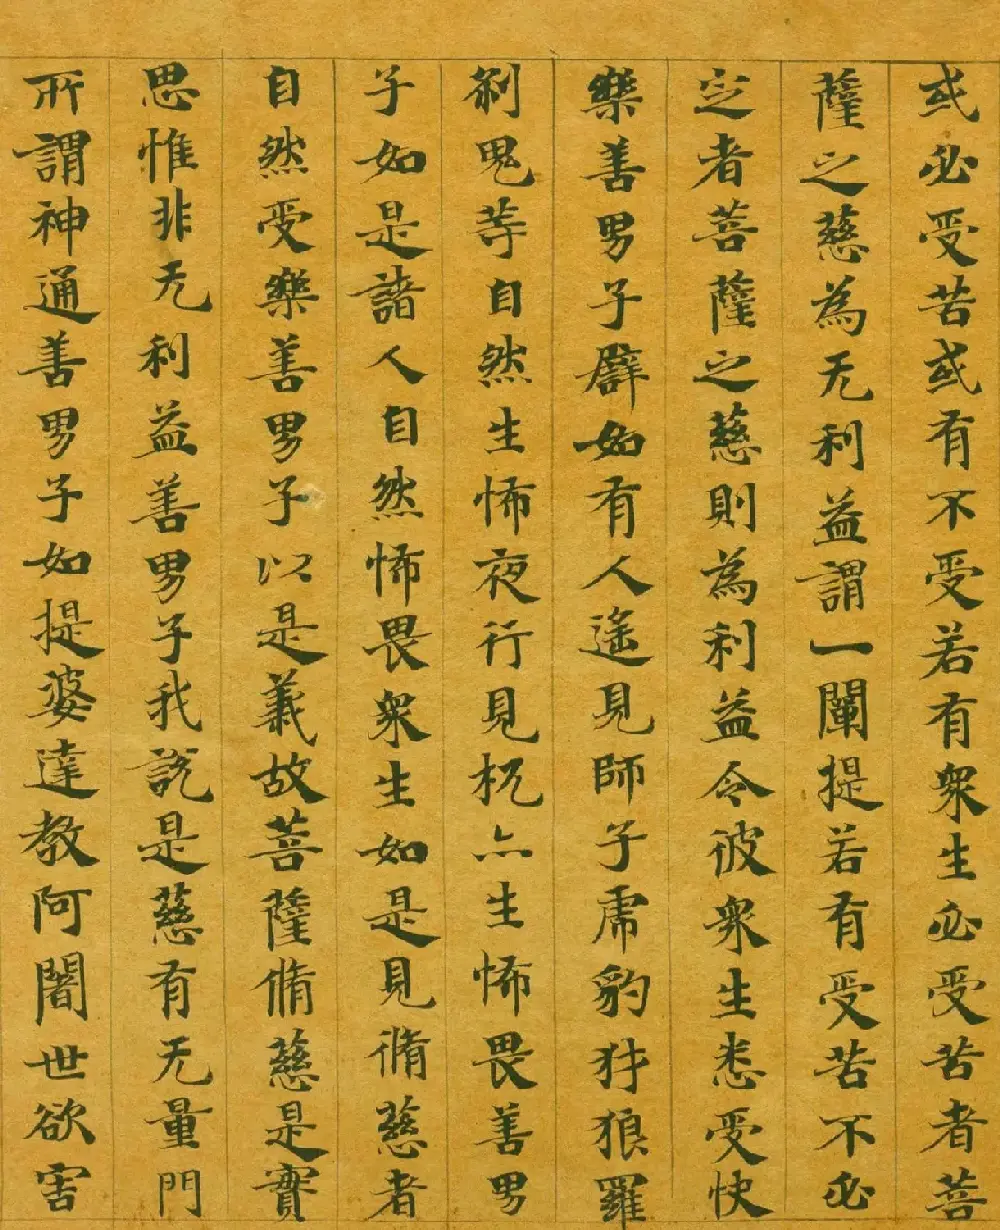 或必受苦或有不受若有眾生必受苦者菩
薩之慈為无利益謂一闡提若有受苦不必
㝎者菩薩之慈則為利益令彼眾生悉受快
樂善男子譬如有人遙見師子虎豹犲狼羅
剎鬼等自然生怖夜行見杌亦生怖畏善男
子如是諸人自然怖畏眾生如是見脩慈者
自然受樂善男子以是義故菩薩脩慈是實
思惟非无利益善男子我說是慈有无量門
所謂神通善男子如提婆達教阿闍世欲害